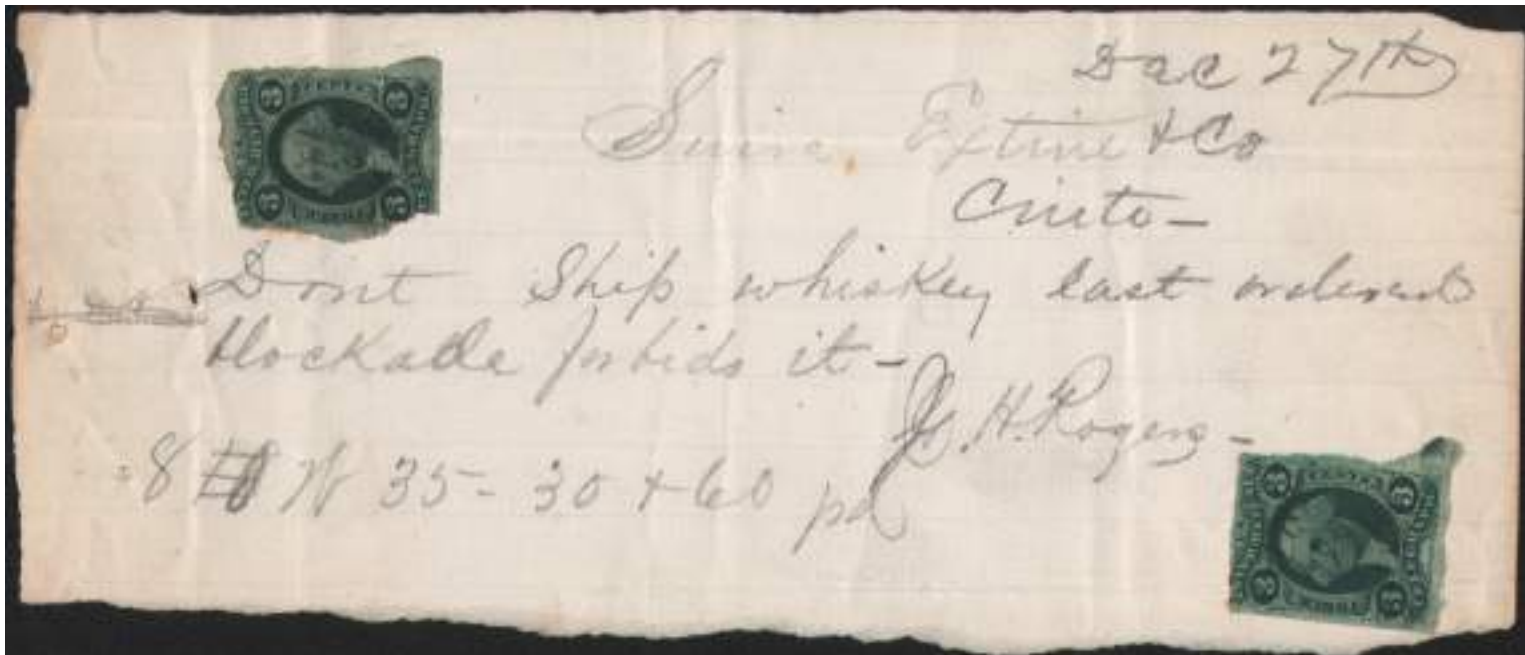 Dec 27th
Extine & Co
Cinto -
Dont Ship whiskey last ordered
blockade forbids it -
H. Rogers -
8 W 35 - 30 + 60 pd
3 3
3 3
3 3
3 3